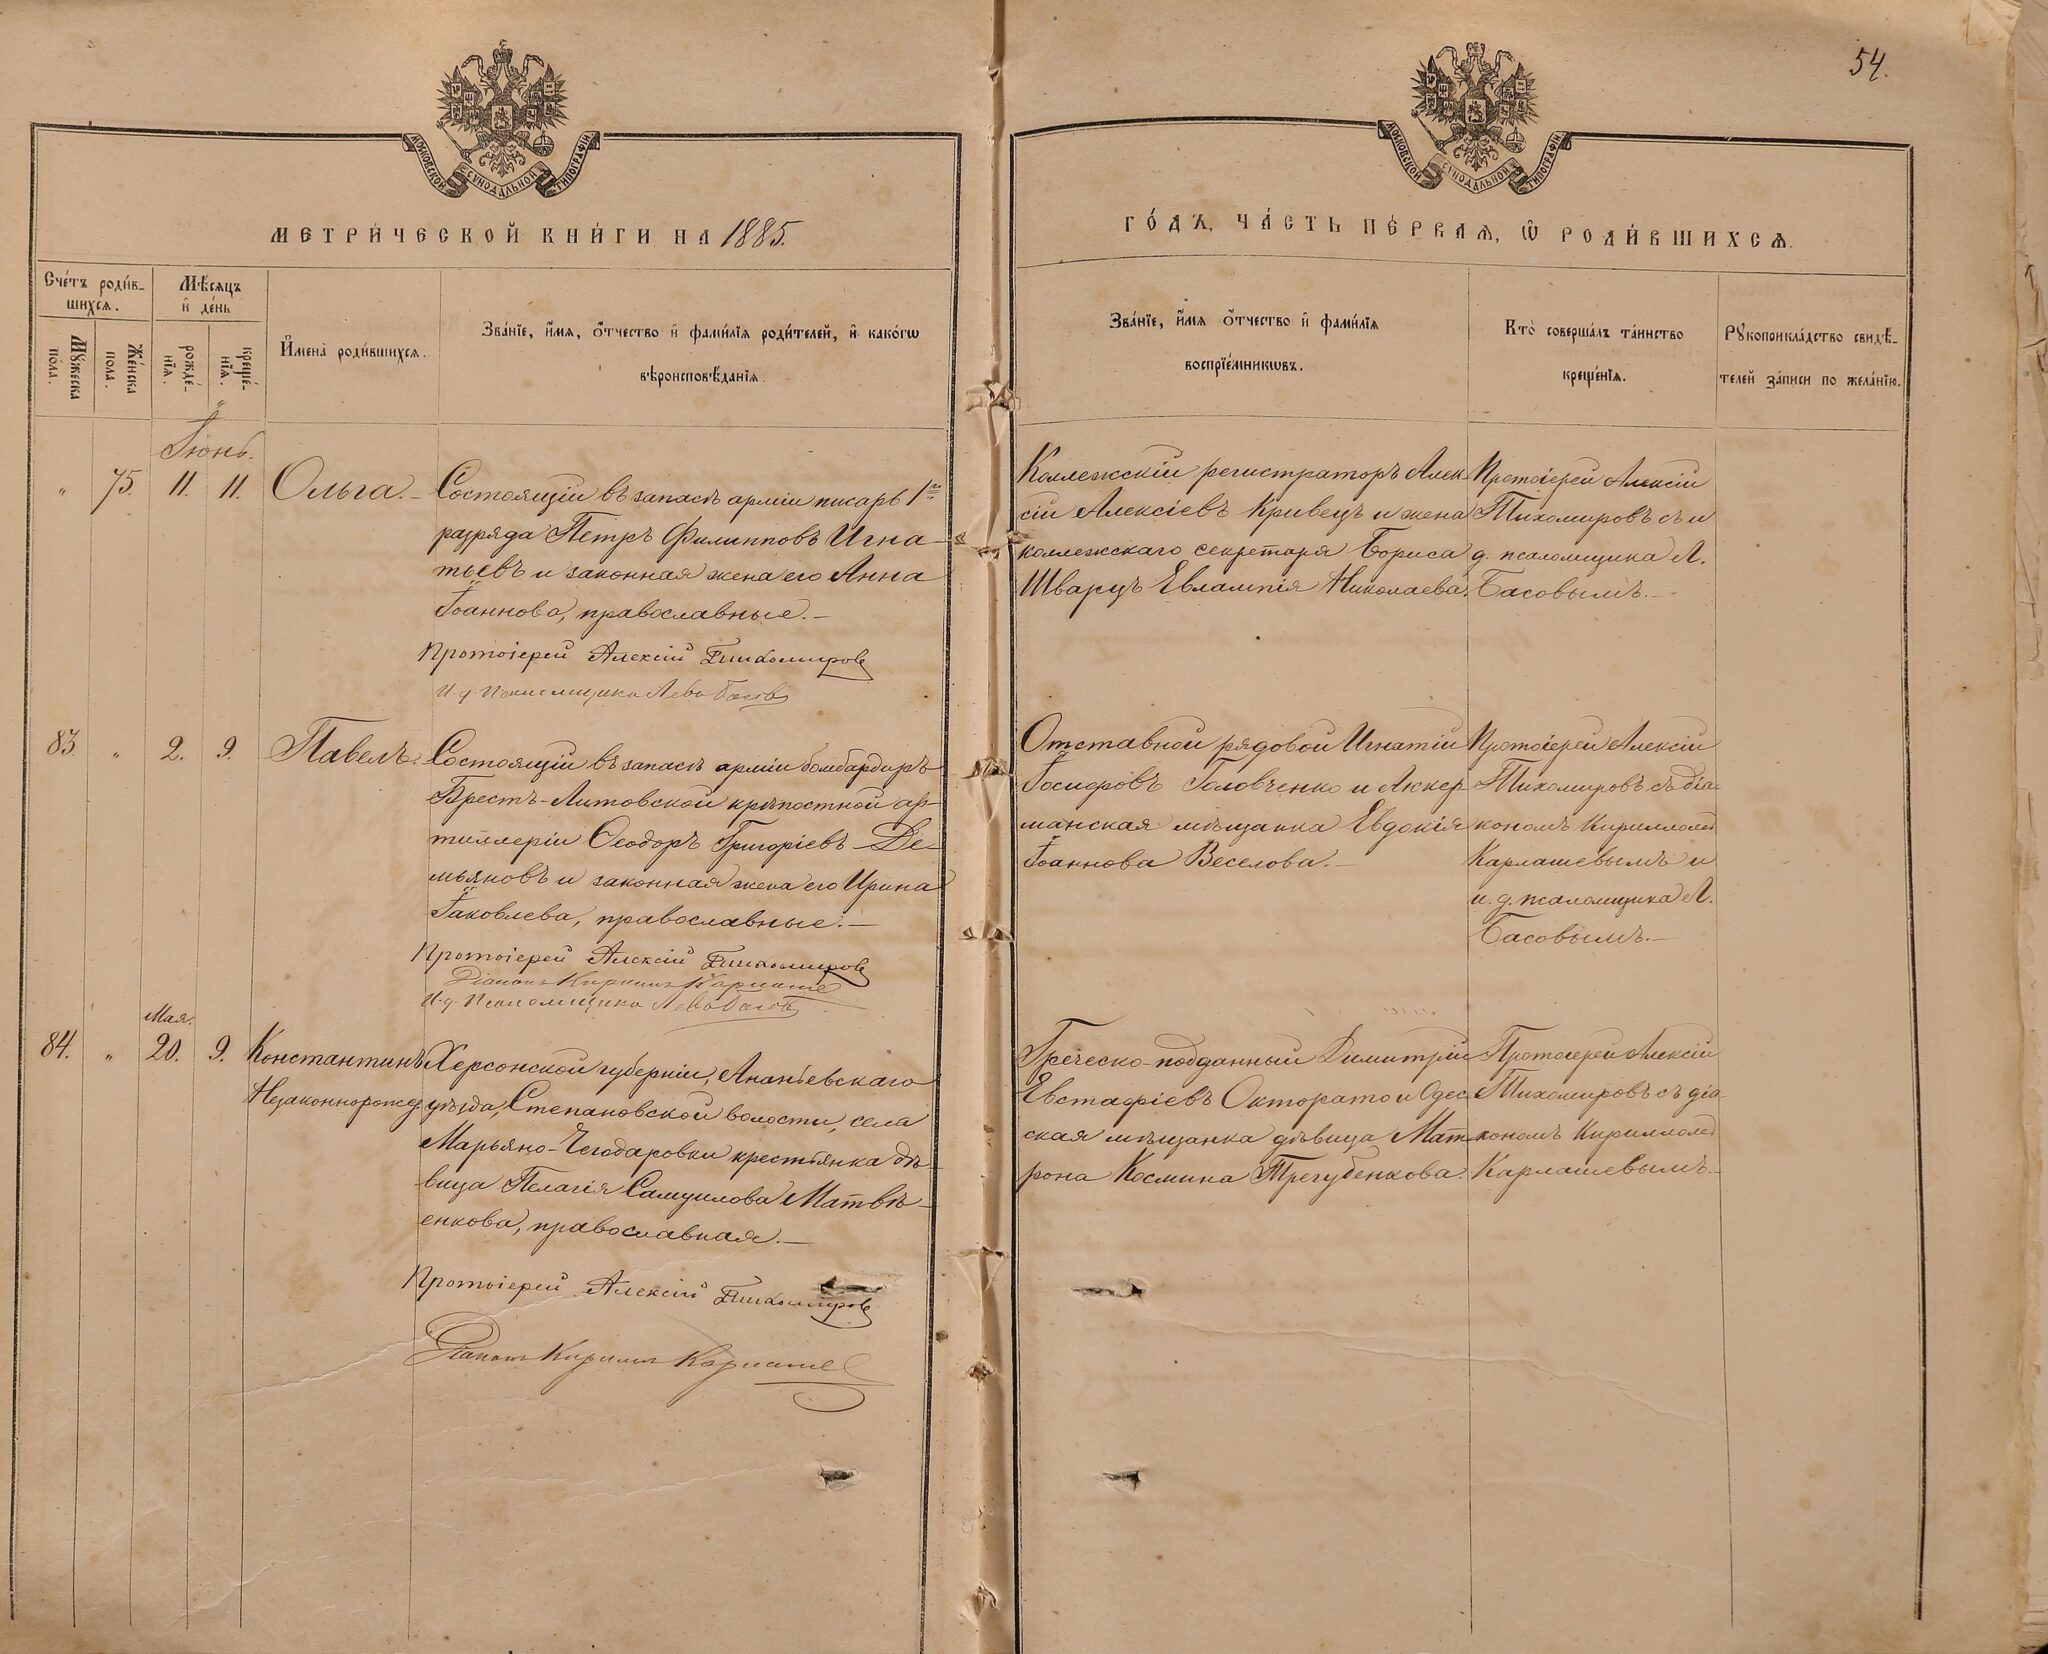 54.
МОСКОВСКОЙ СѴНОДАЛЬНОЙ ТИПОГРАФІИ
МОСКОВСКОЙ СѴНОДАЛЬНОЙ ТИПОГРАФІИ
МЕТРИ́ЧЕСКОЙ КНИ́ГИ НА 1885.
ГО́ДЪ, ЧА́СТЬ ПЕ́РВАЯ, Ѽ РОДИ́ВШИХСЯ.
Сче́тъ роди́в-
шихся.
Мѣ́сяцъ
и҆ де́нь
Мꙋ́жеска
по́ла.
Же́нска
пола.
рожде́-
нїя.
креще́-
нїя.
И҆мена̀ роди́вшихся.
Зва́нїе, и҆́мя, ѻ҆́тчество и҆ фами́лїя роди́телей, и҆ како́гѡ
вѣроисповѣ́данїя.
Зва́нїе, и҆́мя ѻ҆́тчество и҆ фами́лїя
воспрїе́мникѡвъ.
Кто̀ соверша́лъ та́инство
креще́нїя.
Рꙋкоприкла́дство свидѣ́-
телей за́писи по жела́нїю.
Іюнь.
" 75. 11. 11. Ольга.
Состоящій въ запасѣ арміи писарь 1го
разряда Петръ Филипповъ Игна-
тьевъ и законная жена его Анна
Іоаннова, православные.
Протоіерей Алексій Тихомировъ
И. д. Псаломщика Левъ Басовъ
Коллежскій регистраторъ Алек-
сій Алексіевъ Кривецъ и жена
коллежскаго секретаря Бориса
Шварцъ Евлампія Николаева.
Протоіерей Алексій
Тихомировъ съ и
д. псаломщика Л.
Басовымъ.
83. " 2. 9. Павелъ.
Состоящій въ запасѣ арміи бомбардиръ
Брестъ-Литовской крѣпостной ар-
тиллеріи Ѳеодоръ Григоріевъ Де-
мьяновъ и законная жена его Ирина
Іаковлева, православные.
Протоіерей Алексій Тихомировъ
Діаконъ Кириллъ Карлаше
И. д. Псаломщика Левъ Басовъ
Отставной рядовой Игнатій
Іосифовъ Головченко и Аккер-
манская мѣщанка Евдокія
Іоаннова Веселова.
Протоіерей Алексій
Тихомировъ съ діа-
кономъ Кирилломъ
Карлашевымъ и
и. д. псаломщика Л.
Басовымъ.
Мая.
84. " 20. 9. Константинъ
Незаконнорожд.
Херсонской губерніи, Ананьевскаго
уѣзда, Степановской волости, села
Марьяно-Чегодаровки крестьянка дѣ-
вица Пелагія Самуилова Матвѣ-
енкова, православная.
Протоіерей Алексій Тихомировъ
Діаконъ Кириллъ Карлаше
Греческо-подданный Димитрій
Евстафіевъ Окторато и Одес-
ская мѣщанка дѣвица Мат-
рона Космина Трегубенкова.
Протоіерей Алексій
Тихомировъ съ діа-
кономъ Кирилломъ
Карлашевымъ.